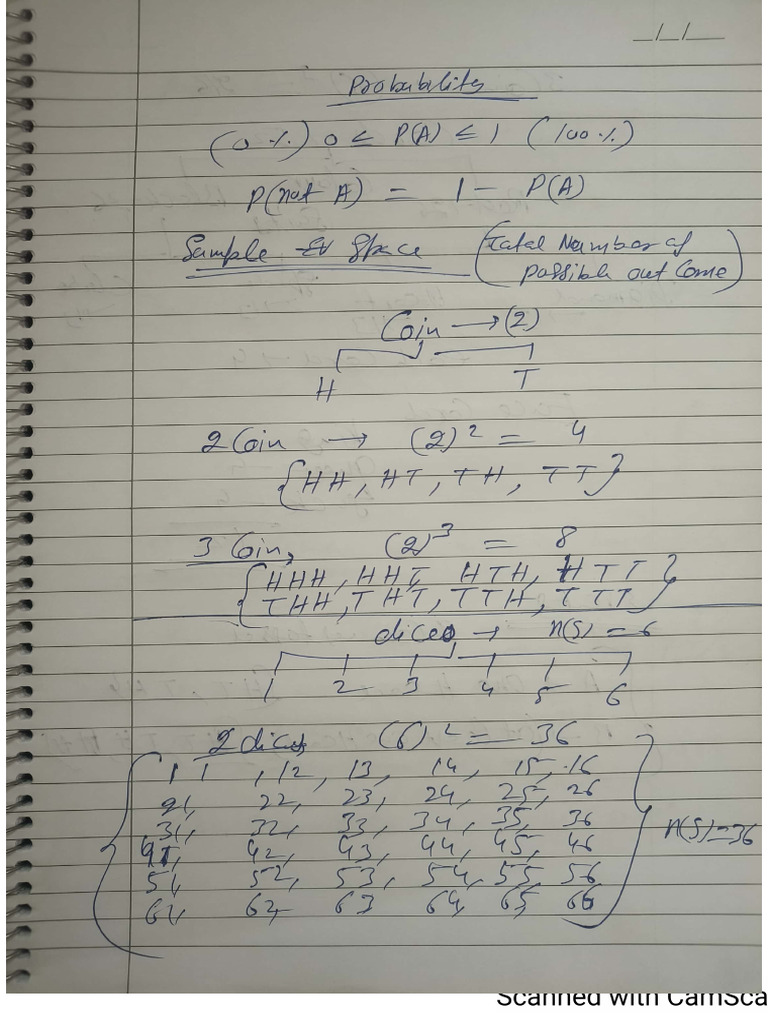 _/_/__
Probability
(0 %) 0 ≤ P(A) ≤ 1 (100 %)
P(not A) = 1 - P(A)
Sample Space (Total Number of
possible out Come)
Coin → (2)
H T
2 Coin → (2)² = 4
{HH, HT, TH, TT}
3 Coin, (2)³ = 8
{HHH, HHT, HTH, HTT
THH, THT, TTH, TTT}
dice → n(S) = 6
1 2 3 4 5 6
2 dice, (6)² = 36
11, 12, 13, 14, 15, 16
21, 22, 23, 24, 25, 26
31, 32, 33, 34, 35, 36 n(S)=36
41, 42, 43, 44, 45, 46
51, 52, 53, 54, 55, 56
61, 62, 63 64, 65, 66
Scanned with CamSca